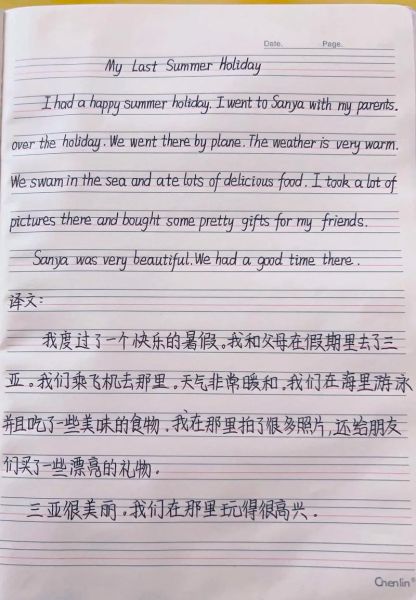 Date. Page.
My Last Summer Holiday
I had a happy summer holiday. I went to Sanya with my parents.
over the holiday. We went there by plane. The weather is very warm.
We swam in the sea and ate lots of delicious food. I took a lot of
pictures there and bought some pretty gifts for my friends.
Sanya was very beautiful. We had a good time there.
译文:
我度过了一个快乐的暑假。我和父母在假期里去了三
亚。我们乘飞机去那里。天气非常暖和。我们在海里游泳
并且吃了一些美味的食物.我在那里拍了很多照片,还给朋友
们买了一些漂亮的礼物.
三亚很美丽.我们在那里玩得很高兴.
Chenlin